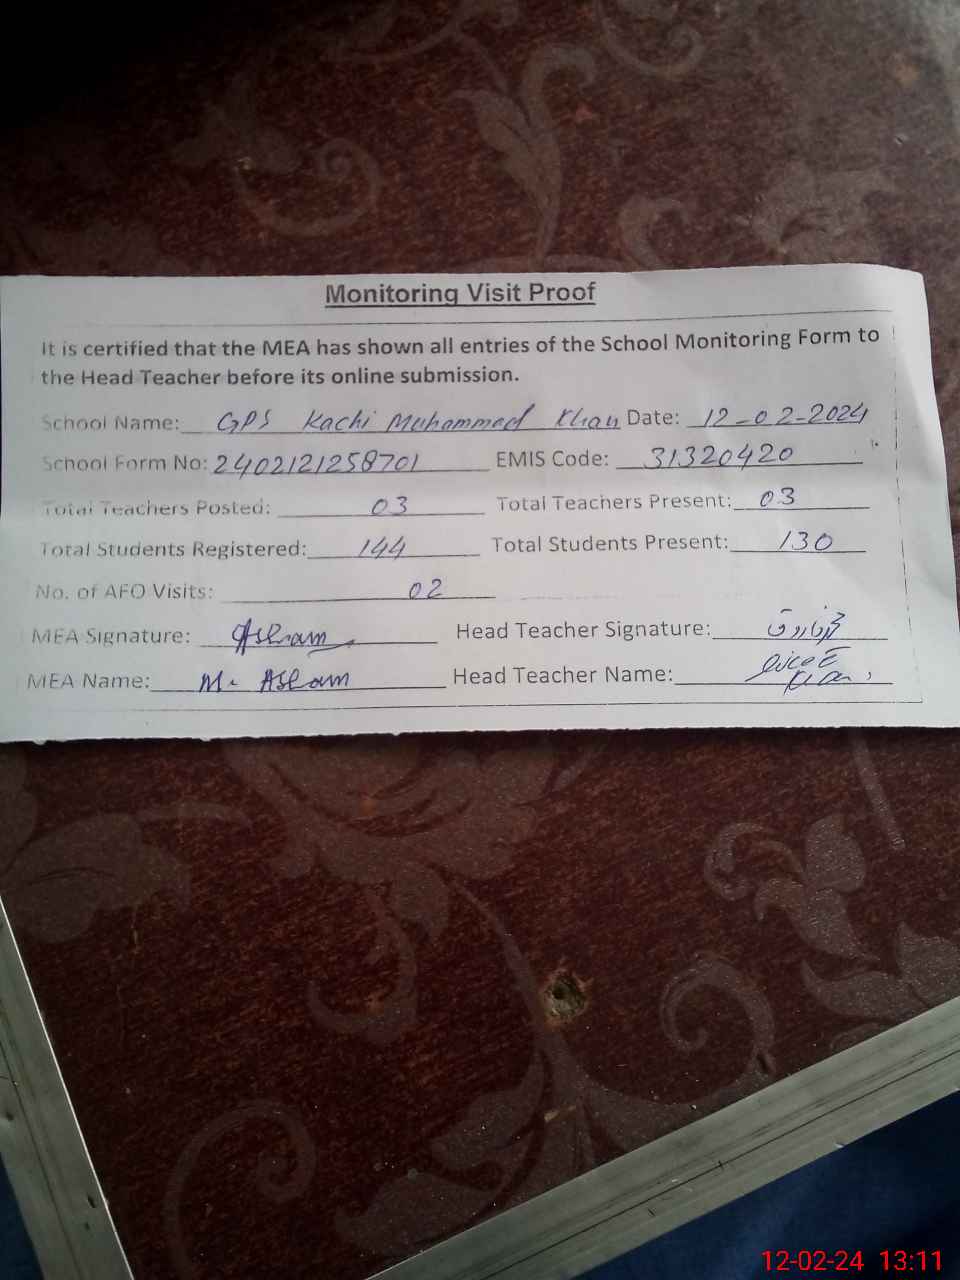 Monitoring Visit Proof
It is certified that the MEA has shown all entries of the School Monitoring Form to
the Head Teacher before its online submission.
School Name: GPS Kachi Muhammad Khan Date: 12-02-2024
School Form No: 2402121258701 EMIS Code: 31320420
Total Teachers Posted: 03 Total Teachers Present: 03
Total Students Registered: 144 Total Students Present: 130
No. of AFO Visits: 02
MEA Signature: Aslam Head Teacher Signature:
MEA Name: M. Aslam Head Teacher Name:
12-02-24 13:11